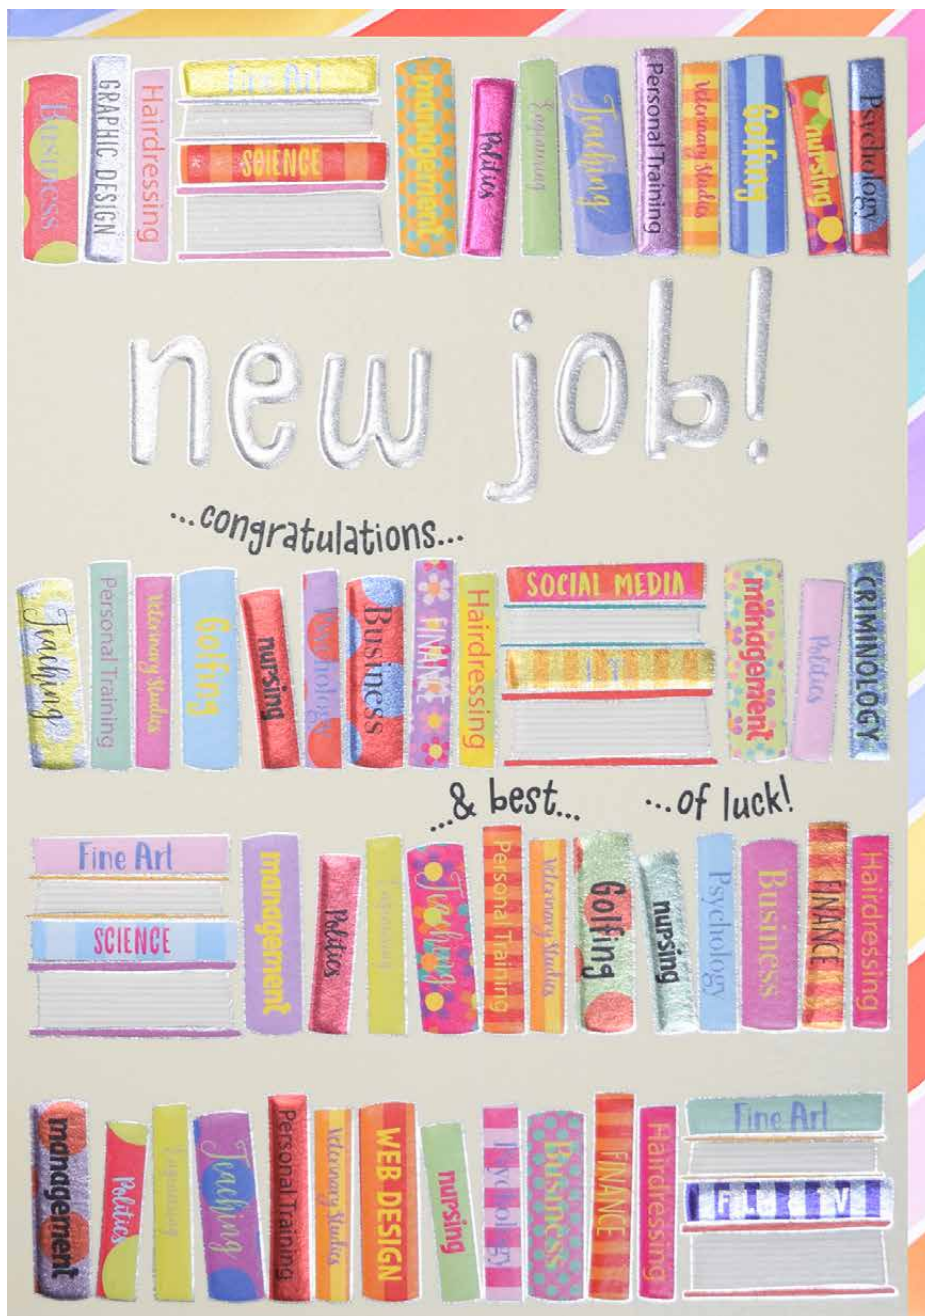 Business
GRAPHIC DESIGN
Hairdressing
Fine Art
SCIENCE
management
Politics
Engineering
Teaching
Personal Training
Veterinary Studies
Golfing
nursing
Psychology
new job!
...congratulations...
Teaching
Personal Training
Veterinary Studies
Golfing
nursing
Psychology
Business
FINANCE
Hairdressing
SOCIAL MEDIA
management
Politics
CRIMINOLOGY
...& best... ...of luck!
Fine Art
SCIENCE
management
Politics
Engineering
Teaching
Personal Training
Veterinary Studies
Golfing
nursing
Psychology
Business
FINANCE
Hairdressing
management
Politics
Engineering
Teaching
Personal Training
Veterinary Studies
WEB DESIGN
nursing
Psychology
Business
FINANCE
Hairdressing
Fine Art